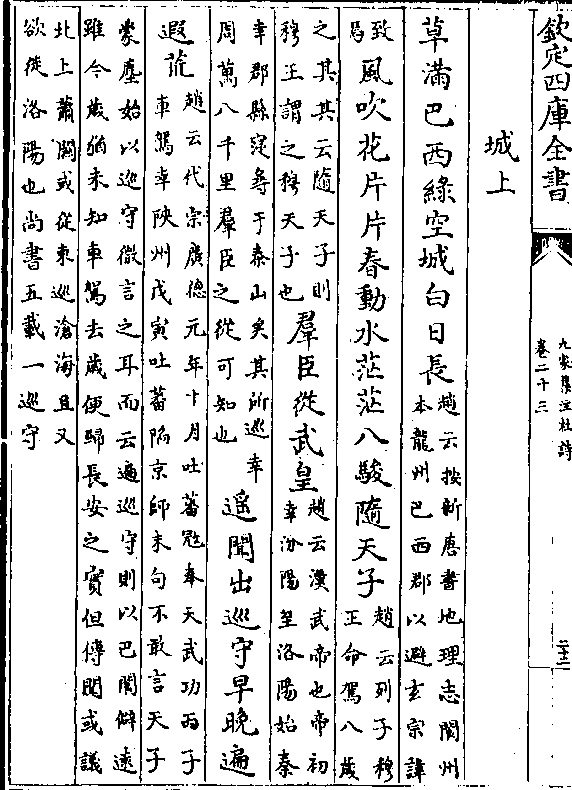 欽定四庫全書
九家集注杜詩
卷二十三
城上
草滿巴西綠空城白日長
趙云按新唐書地理志閬州
本龍州巴西郡以避玄宗諱
風吹花片片春動水茫茫八駿隨天子
趙云列子穆
正命駕八歲
之其其云隨天子則
穆王謂之穆天子也
羣臣從武皇
趙云漢武帝也帝初
幸汾陽至洛陽始秦
幸郡縣寖尋于泰山矣其所巡幸
周萬八千里羣臣之從可知也
遥聞出巡守早晚遍
遐荒
趙云代宗廣德元年十月吐蕃冦奉天武功丙子
車駕幸陜州戊寅吐蕃陷京師末句不敢言天子
蒙塵始以巡守微言之耳而云遍巡守則以巴閬僻遠
雖今歲猶未知車駕去歲便歸長安之實但傳聞或議
北上蕭關或從東巡滄海且又
欲徙洛陽也尚書五載一巡守